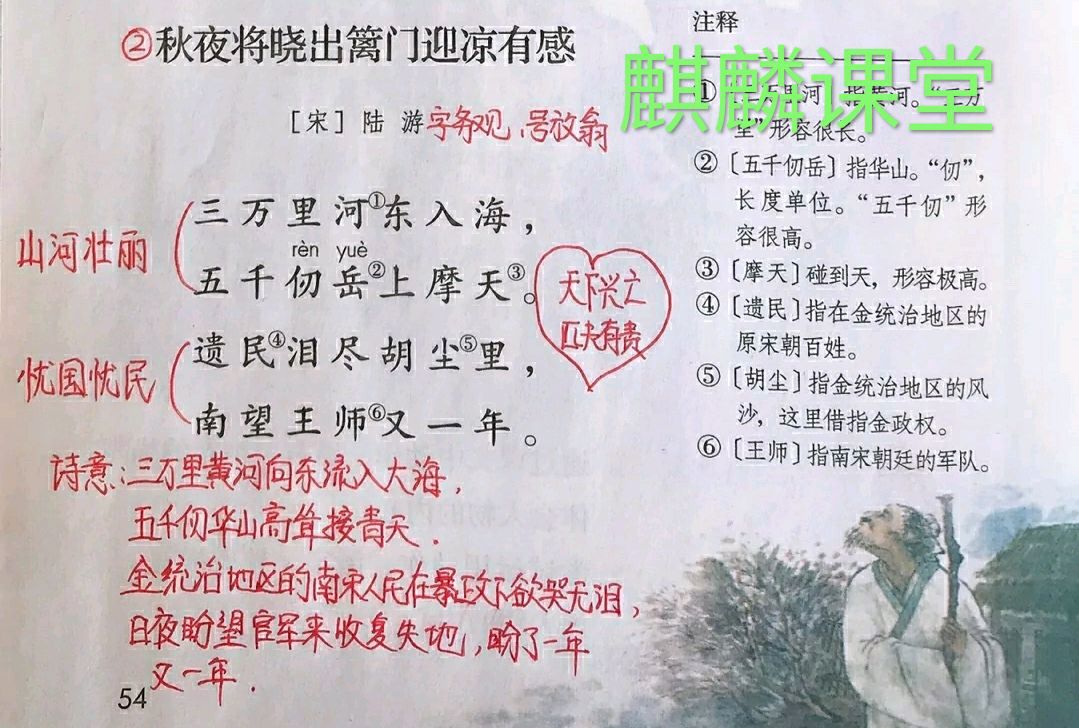 ②秋夜将晓出篱门迎凉有感
[宋] 陆 游 字务观、号放翁
山河壮丽
三万里河①东入海，
rèn yuè
五千仞岳②上摩天③。
天下兴亡
匹夫有责
忧国忧民
遗民④泪尽胡尘⑤里，
南望王师⑥又一年。
诗意：三万里黄河向东流入大海，
五千仞华山高耸接青天．
金统治地区的南宋人民在暴政下欲哭无泪，
日夜盼望官军来收复失地，盼了一年
又一年．
54
注释
麒麟课堂
①
里”形容很长。
②〔五千仞岳〕指华山。“仞”，
长度单位。“五千仞”形
容很高。
③〔摩天〕碰到天，形容极高。
④〔遗民〕指在金统治地区的
原宋朝百姓。
⑤〔胡尘〕指金统治地区的风
沙，这里借指金政权。
⑥〔王师〕指南宋朝廷的军队。